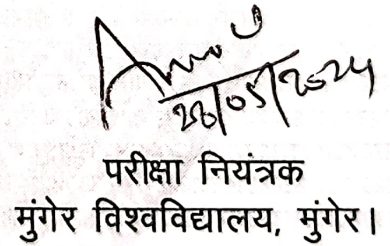 28/05/2024
परीक्षा नियंत्रक
मुंगेर विश्वविद्यालय, मुंगेर।